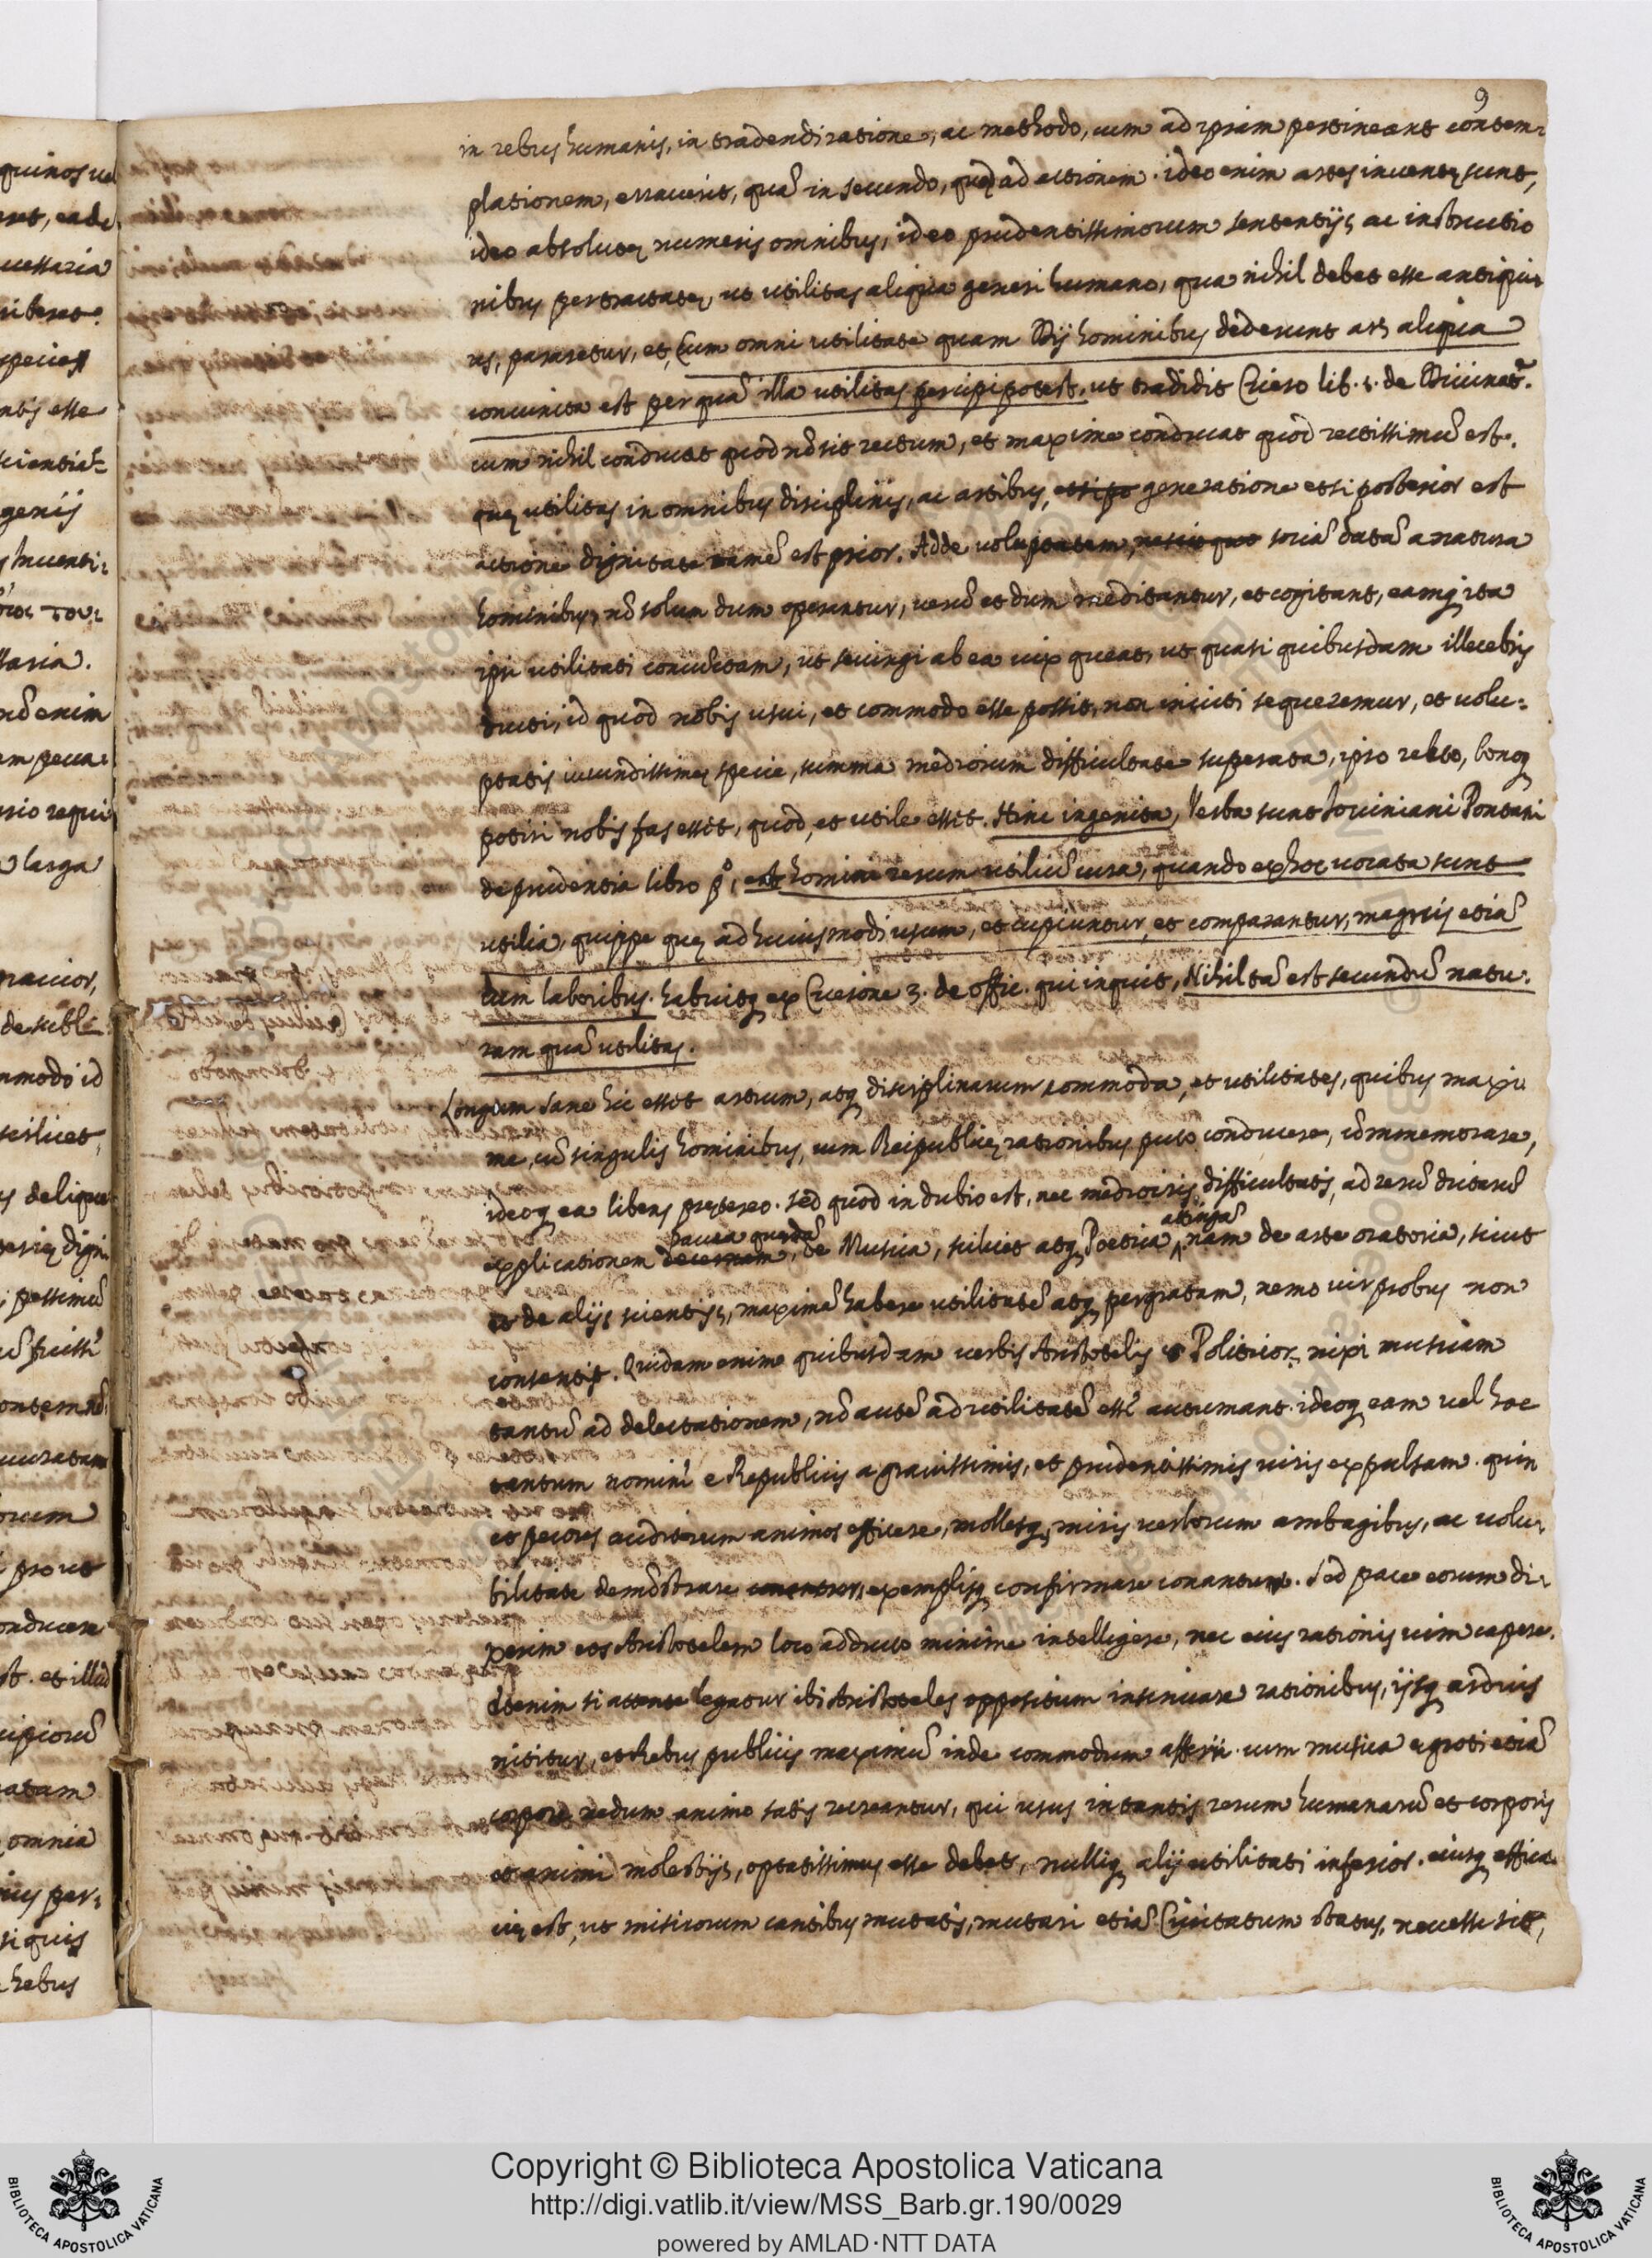 9
in rebus humanis, in tradendi ratione, ac methodo, cum ad ipsam pertineant contem-
plationem, erraverit, quā in secundo, quę ad actionem. ideo enim artes inventę sunt,
ideo absolutę numeris omnibus, ideo prudentissimorum sententijs ac instructio
nibus pertractatę, ut utilitas aliqua generi humano, qua nihil debet esse antiqui-
us, pararetur, et, Cum omni utilitate quam Dij hominibus dederunt ars aliqua
coniuncta est per quā illa utilitas percipi potest. ut tradidit Cicero lib. 1. de Divinat.
cum nihil conducat quod nō sit rectum, et maxime conducat quod rectissimū est.
quę utilitas in omnibus disciplinis, ac artibus, generatione etsi posterior est
actione dignitate tamē est prior. Adde voluptatem, sociā datā a natura
hominibus, nō solum dum operantur, verū et dum meditantur, et cogitant, eamq ita
ipsi utilitati coniunctam, ut seiungi ab ea vix queat, ut quasi quibusdam illecebris
ducti, id quod nobis usui, et commodo esse possit, non inviti sequeremur, et volu-
ptatis iucundissimę specie, summa mediorum difficultate superata, ipso recto, bonoq
potiri nobis fas esset, quod, et utile esset. Hinc ingenita, Verba sunt Joviniani Pontani
de prudentia libro pº, est homini rerum utiliū cura, quando ex hoc vocata sunt
utilia, quippe quę ad huiusmodi usum, et cupiuntur, et comparantur, magnis etiā
cum laboribus. habuitq ex Cicerone 3. de offic. qui inquit, Nihil tā est secundū natu-
ram quā utilitas.
Longum sane hic esset artium, atq disciplinarum commoda, et utilitates, quibus maxi
me, cū singulis hominibus, cum Reipublicę rationibus puto conducere, cōmmemorare,
ideoq ea libens prętereo. sed quod in dubio est, nec mediocris difficultatis, ad rerū dictarū
pauca quędā attingā
explicationem decernam, de Musica, scilicet atq Poetica, nam de arte oratoria, sicut
et de alijs scientijs, maximā habere utilitatē atq pergratam, nemo vir probus non
consentit. Quidam enim quibusdam verbis Aristotelis 8 Politicor. nixi musicam
tantū ad delectationem, nō autē ad utilitatē essē autumant. ideoq eam vel hoc
tantum nominē e Republicis a gravissimis, et prudentissimis viris expulsam. quin
et peiores auditorum animos efficere, mollesq, miris verborum ambagibus, ac volu-
bilitate demōstrare exemplisq confirmare conantur. Sed pace eorum di-
xerim eos Aristotelem loco adducto minime intelligere, nec eius rationis vim capere.
Etenim si attente legatur ibi Aristoteles oppositum insinuare rationibus, ijsq arduis
nititur, et Rebus publicis maximū inde commodum afferri. cum musica ęgroti etiā
corpore nedum animo satis recreantur, qui usus in tantis rerum humanarū et corporis
et animi molestijs, optatissimus esse debet, nulliq alij utilitati inferior. eiusq effica
cię est, ut misicorum cantibus mutatis, mutari etiā Civitatum status, necesse sit,
Copyright © Biblioteca Apostolica Vaticana
http://digi.vatlib.it/view/MSS_Barb.gr.190/0029
powered by AMLAD·NTT DATA
BIBLIOTECA APOSTOLICA VATICANA
BIBLIOTECA APOSTOLICA VATICANA